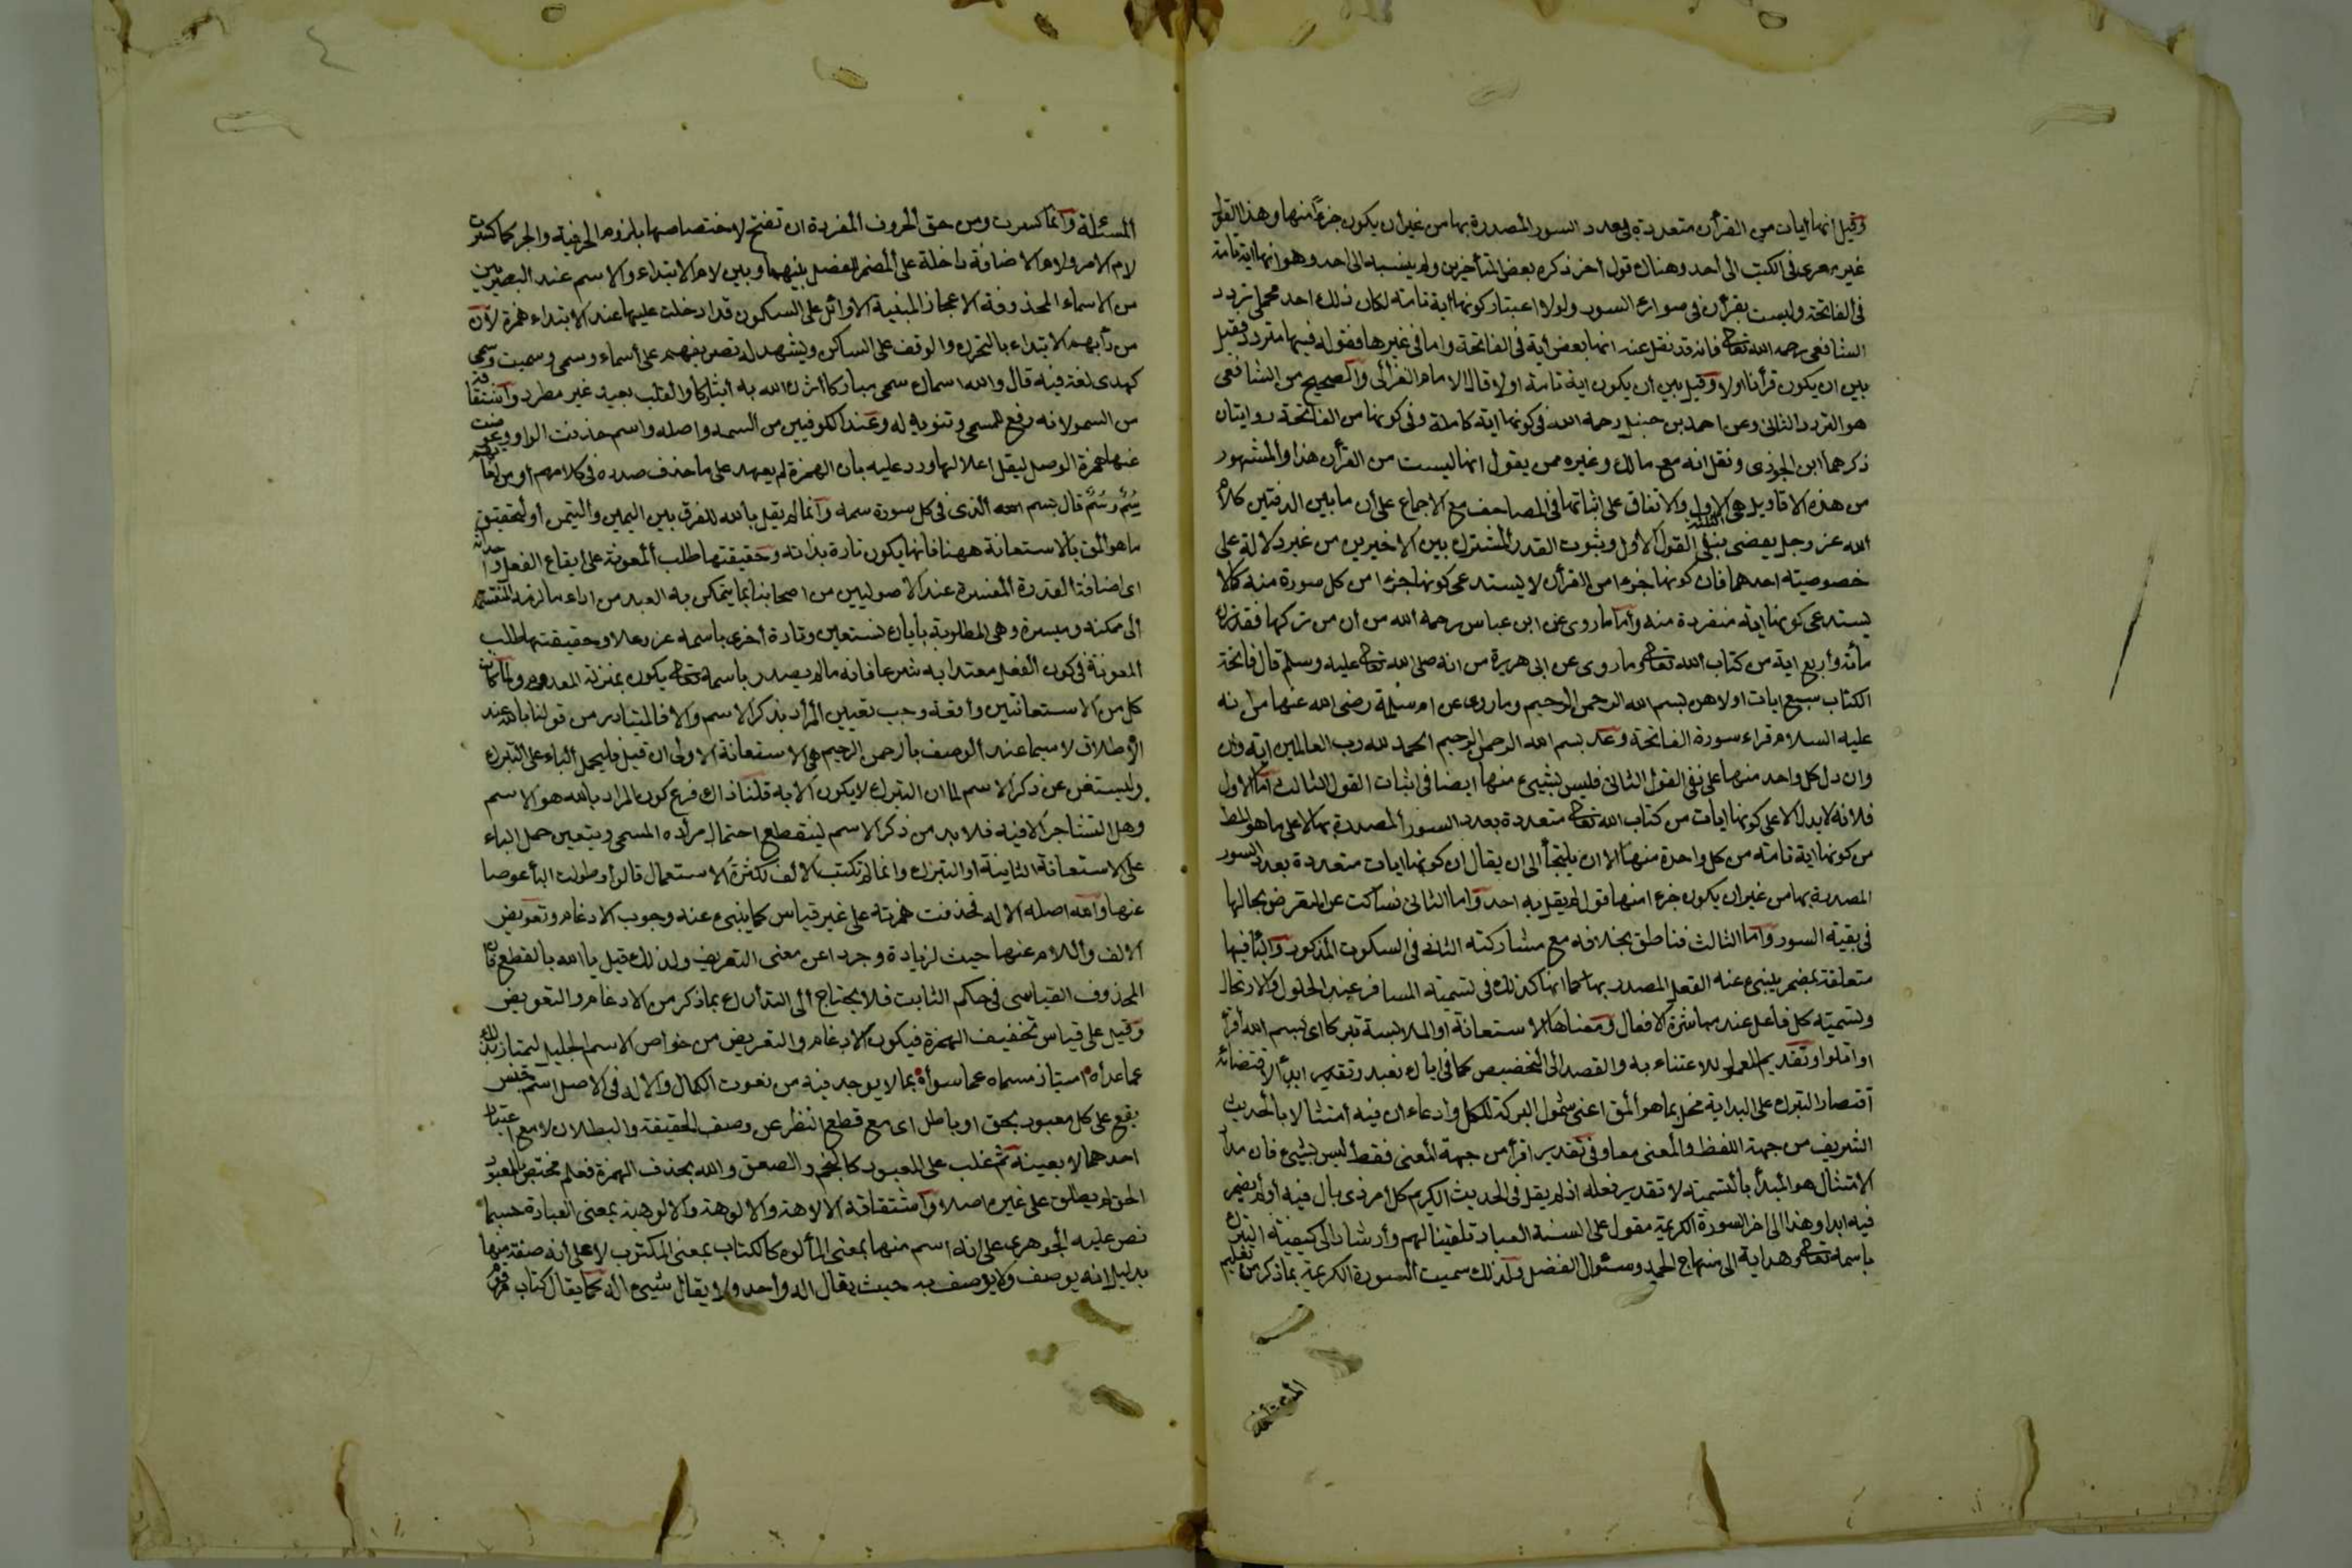 وقيل انها ايات من القرأن متعددة بعدد السور المصدرة بها من غير أن يكون جزءًا منها وهذا القول
غير معزى فى الكتب الى أحد وهناك قول اخر ذكره بعض المتأخرين ولم ينسبه الى احد وهو انها اية تامة
فى الفاتحة وليست بقرأن فى سوائر السور ولولا اعتبار كونها اية تامة لكان ذلك احد محملى تردد
الشافعى رحمه الله تعالى فانه قد نقل عنه انها بعض أية فى الفاتحة واما فى غيرها فقوله فيها متردد فقيل
بين ان يكون قرأنا اولا وقيل بين أن يكون اية تامة اولا قال الامام الغزالى والصحيح من الشافعى
هو التردد الثانى وعن احمد بن حنبل رحمه الله فى كونها اية كاملة وفى كونها من الفاتحة روايتان
ذكرهما ابن الجوزى ونقل انه مع مالك وغيره ممن يقول انها ليست من القرأن هذا والمشهور
من هذه الاقاويل هى الاول والاتفاق على اثباتها فى المصاحف مع الاجماع على أن ما بين الدفتين كلام
الله عز وجل يقضى بنفى القول الاول وثبوت القدر المشترك بين الاخيرين من غير دلالة على
خصوصيته احدهما فان كونها جزء امن القرأن لا يستدعى كونها جزء ا من كل سورة منه كما لا
يستدعى كونها اية منفردة منه وأما ما روى عن ابن عباس رحمه الله من أن من تركها فقد ترك
مأئة وأربع اية من كتاب الله تعالى وما روى عن ابى هريرة من انه صلى الله تعالى عليه وسلم قال فاتحة
الكتاب سبع ايات اولاهن بسم الله الرحمن الرحيم وما روى عن ام سلمة رضى الله عنها من انه
عليه السلام قراء سورة الفاتحة وعد بسم الله الرحمن الرحيم الحمد لله رب العالمين اية وان
وان دل كل واحد منها على نفى القول الثانى فليس بشيىء منها ايضا فى اثبات القول الثالث أما الاول
فلانه لا يدل الا على كونها ايات من كتاب الله تعالى متعددة بعدد السور المصدرة بها لا على ما هو المط
من كونها اية تامة من كل واحدة منها الا ان يلتجأ الى ان يقال ان كونها ايات متعددة بعدد السور
المصدرة بها من غير ان يكون جزء ا منها قول لم يقل به احد واما الثانى فساكت عن التعرض بحالها
فى بقية السور وأما الثالث فناطق بخلافه مع مشاركته الثانى فى السكوت المذكور والبأ فيها
متعلقة بمضمر ينبىء عنه الفعل المصدر بها كما انها كذلك فى تسمية المسافر عند الحلول والارتحال
وتسمية كل فاعل عند مباشرة الافعال ومعناها الاستعانة او الملابسة تبركا اى بسم الله أقرأ
او اتلوا وتقديم المعمول للاعتناء به والقصد الى التخصيص كما فى اياك نعبد وتقدير ابدأ لاقتضائه
أقتصار التبرك على البداية مخل بما هو المق اعنى شمول البركة للكل وادعاء ان فيه امتثالا بالحديث
الشريف من جهة اللفظ والمعنى معا وفى تقدير اقرأ من جهة المعنى فقط ليس بشيىء فان مدار
الامتثال هو البدأ بالتسمية لا تقدير فعله اذ لم يقل فى الحديث الكريم كل أمر ذى بال فيه أو لم يضمر
فيه ابدا وهذا الى اخر السورة الكريمة مقول على السنة العباد تلقينا لهم وأرشادا الى كيفية التبرك
باسمه تعالى وهداية الى منهاج الحمد وسئوال الفضل ولذلك سميت السورة الكريمة بما ذكر من تعليم
المسئلة وانما كسرت ومن حق الحروف المفردة ان تفتح لاختصاصها بلزوم الحرفية والجر كما كسرت
لام الامر ولام الاضافة داخلة على المضمر للفصل بينهما وبين لام الابتداء والاسم عند البصريين
من الاسماء المحذوفة الاعجاز المبنية الاوائل على السكون قد ادخلت عليها عند الابتداء همزة لأن
من دأبهم الابتداء بالتحرك والوقف على الساكن ويشهد له تصريفهم على أسماء وسمى وسميت وسمى
كهدى لغة فيه قال والله اسماك سمى مباركا اثرك الله به ايثاركا والقلب بعيد غير مطرد واشتقاقه
من السمو لانه رفع للمسمى وتنويه له وعند الكوفيين من السمة واصله واسم حذفت الواو وعوضت
عنها همزة الوصل ليقل اعلالها ورد عليه بان الهمزة لم يعهد على ما حذف صدره فى كلامهم ومن لغاتهم
سِمٌ وسُمٌ قال بسم الله الذى فى كل سورة سمه وانما لم يقل بالله للفرق بين اليمين والتيمن أو لتحقيق
ما هو المق بالاستعانة ههنا فانها يكون تارة بذاته وحقيقتها طلب المعونة على ايقاع الفعل واحداثه
اى اضافة القدرة المفسرة عند الاصوليين من اصحابنا بما يتمكن به العبد من اداء ما لزمه المنقسمة
الى ممكنة وميسرة وهى المطلوبة بأياك نستعين وتارة أخرى باسمه عز وعلا وحقيقتها طلب
المعونة فى كون الفعل معتدا به شرعا فانه ما لم يصدر باسمه تعالى يكون بمنزلة المعدوم ولما كانت
كل من الاستعانتين وأقعة وجب تعيين المرأد بذكر الاسم والا فالمتبادر من قولنا بالله عند
الاطلاق لا سيما عند الوصف بالرحمن الرحيم هى الاستعانة الاولى ان قيل فليحمل الباء على التبرك
وليستغن عن ذكر الاسم لما ان التبرك لا يكون الا به قلنا ذاك فرع كون المراد بالله هو الاسم
وهل التشاجر الا فيه فلا بد من ذكر الاسم لينقطع احتمال مرأده المسمى ويتعين حمل الباء
على الاستعانة الثانية او التبرك وانما لم تكتب الالف لكثرة الاستعمال قالوا وطولت البأ عوضا
عنها والله اصله الاله فحذفت همزته على غير قياس كما ينبىء عنه وجوب الادغام وتعويض
الالف واللام عنها حيث لزياده وجردا عن معنى التعريف ولذلك قيل يا الله بالقطع فان
المحذوف القياسى فى حكم الثابت فلا يحتاج الى التدأرك بما ذكر من الادغام والتعويض
وقيل على قياس تخفيف الهمزة فيكون الادغام والتعويض من خواص الاسم الجليل ليمتاز بذلك
عما عدأه امتياز مسماه عما سوأه بما لا يوجد فيه من نعوت الكمال والاله فى الاصل اسم جنس
يقع على كل معبود بحق او باطل اى مع قطع النظر عن وصف الحقيقة والبطلان لا مع اعتبار
احدهما لا بعينه ثم غلب على المعبود كالنجم والصعق والله بحذف الهمزة فعلم مختص بالمعبود
الحق لم يطلق على غيره اصلا واشتقاقه الالاهة والالوهة والالوهية بمعنى العبادة حسبما
نص عليه الجوهرى على انه اسم منها بمعنى المألوه كالكتاب بمعنى المكتوب لا على أنه صفة منها
بدليل انه يوصف ولا يوصف به حيث يقال اله وأحد ولا يقال شيىء اله كما يقال كتاب مرقوم